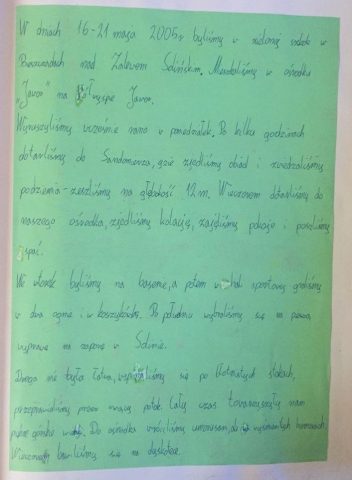 W dniach 16-21 maja 2005r byliśmy w zielonej szkole w
Bieszczadach nad Zalewem Solińskim. Mieszkaliśmy w ośrodku
„Jawor" na Półwyspie Jawor.
Wyruszyliśmy wcześnie rano w poniedziałek. Po kilku godzinach
dotarliśmy do Sandomierza, gdzie zjedliśmy obiad i zwiedzaliśmy
podziemia - zeszliśmy na głębokość 12 m. Wieczorem dotarliśmy do
naszego ośrodka, zjedliśmy kolację, zajęliśmy pokoje i poszliśmy
spać.
We wtorek byliśmy na basenie, a potem w hali sportowej graliśmy
w dwa ognie i w koszykówkę. Po południu wybraliśmy się na pieszą
wyprawę na zaporę w Solinie.
Droga nie była łatwa, wspinaliśmy się po stokach,
przeprawialiśmy przez rwący potok. Cały czas towarzyszyły nam
piękne górskie Do ośrodka wróciliśmy umorusani, ale w humorach.
Wieczorem bawiliśmy się na dyskotece.